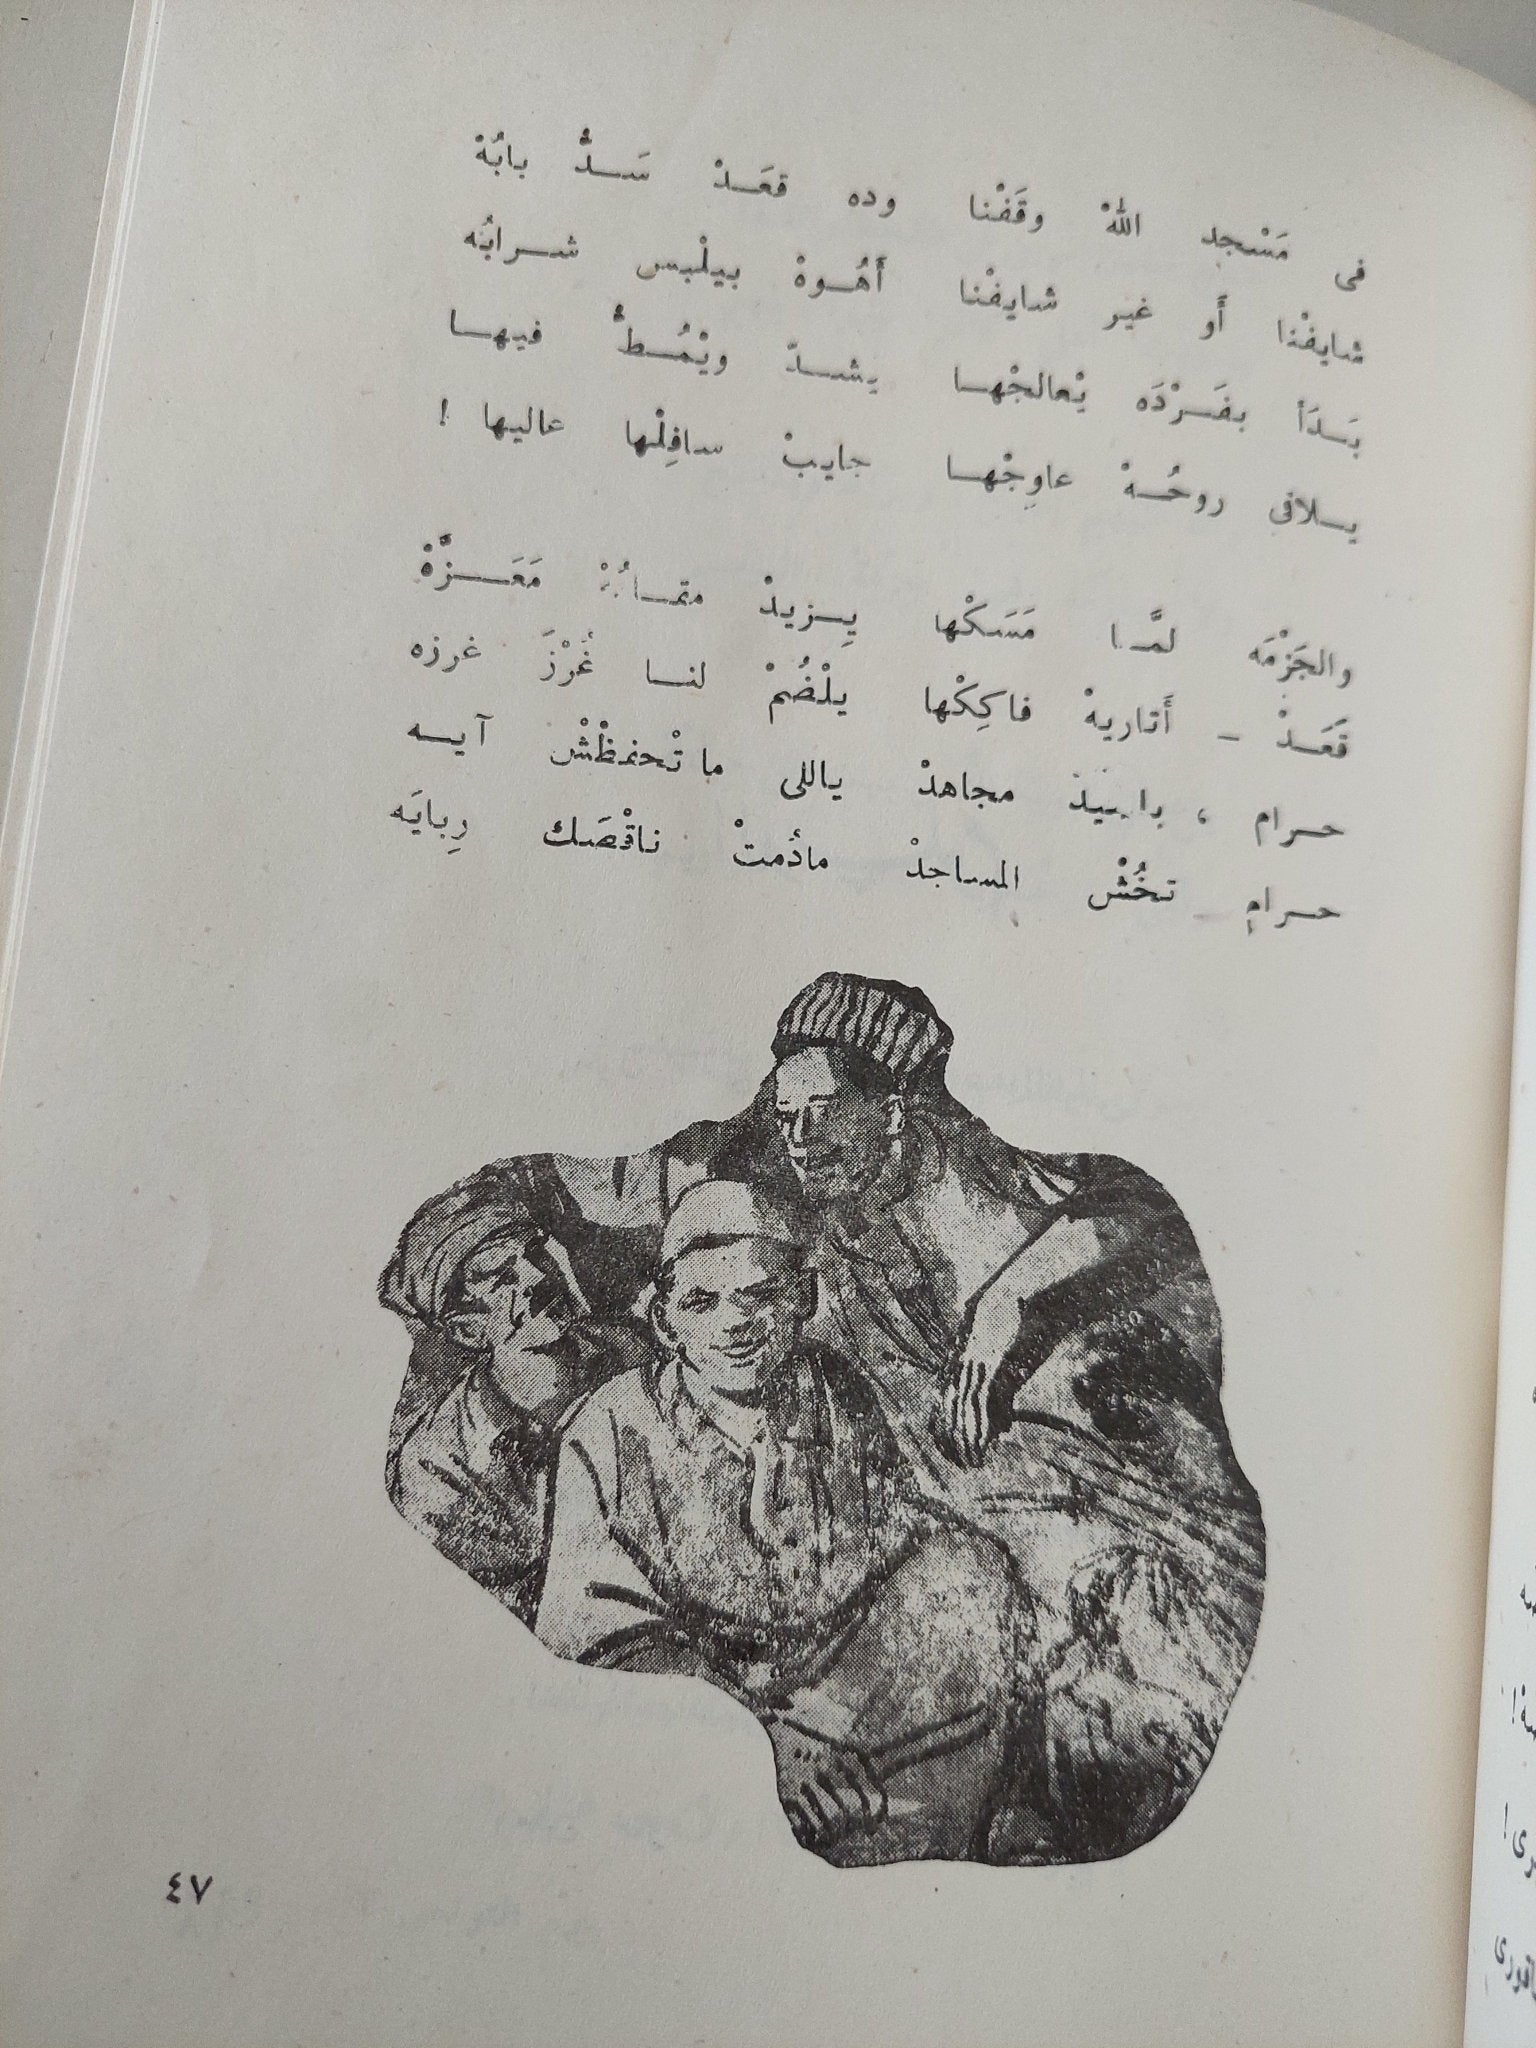 فى مَسْجد اللهْ وقَفْنا وده قعَـدْ سَـدْ بابُهْ
شايفْنا أَو غير شايفْنا أَهُـوهْ بيلْبس شـرابُه
بَـدَأ بفَـرْدَه يْعالجْها يشـدّ ويْمُـطْ فيهـا
يـلافى روحُـهْ عاوِجْهـا جايبْ سافِلْها عاليها !
والجَزْمَه لمَّـا مَسَكْها يِـزيدْ مَعَـزَّهْ
قَعَـدْ – أَتاريهْ فاكِكْها يلْضُمْ لنـا غُرْزَ غرزه
حـرام ، مجاهدْ ياللى ما تْحفظْشْ آيـه
حـرام تخُشْ المساجدْ مادُمتْ ناقْصَك رِبايَه
٤٧